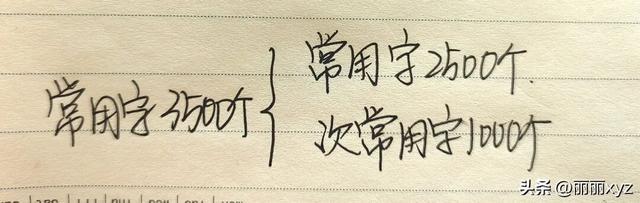 常用字3500个
常用字2500个.
次常用字1000个
头条 @丽丽xyz